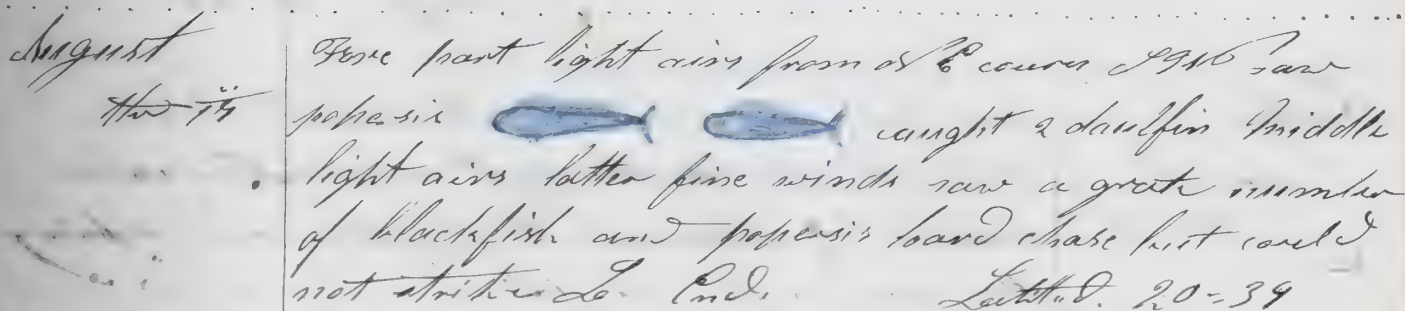 August Fore part light airs from NE course SSW saw
the 15 popesis caught 2 daulfin middle
light airs latter fine winds saw a grate number
of blackfish and popesis loard chase but could
not strike So Ends Latitud. 20=39